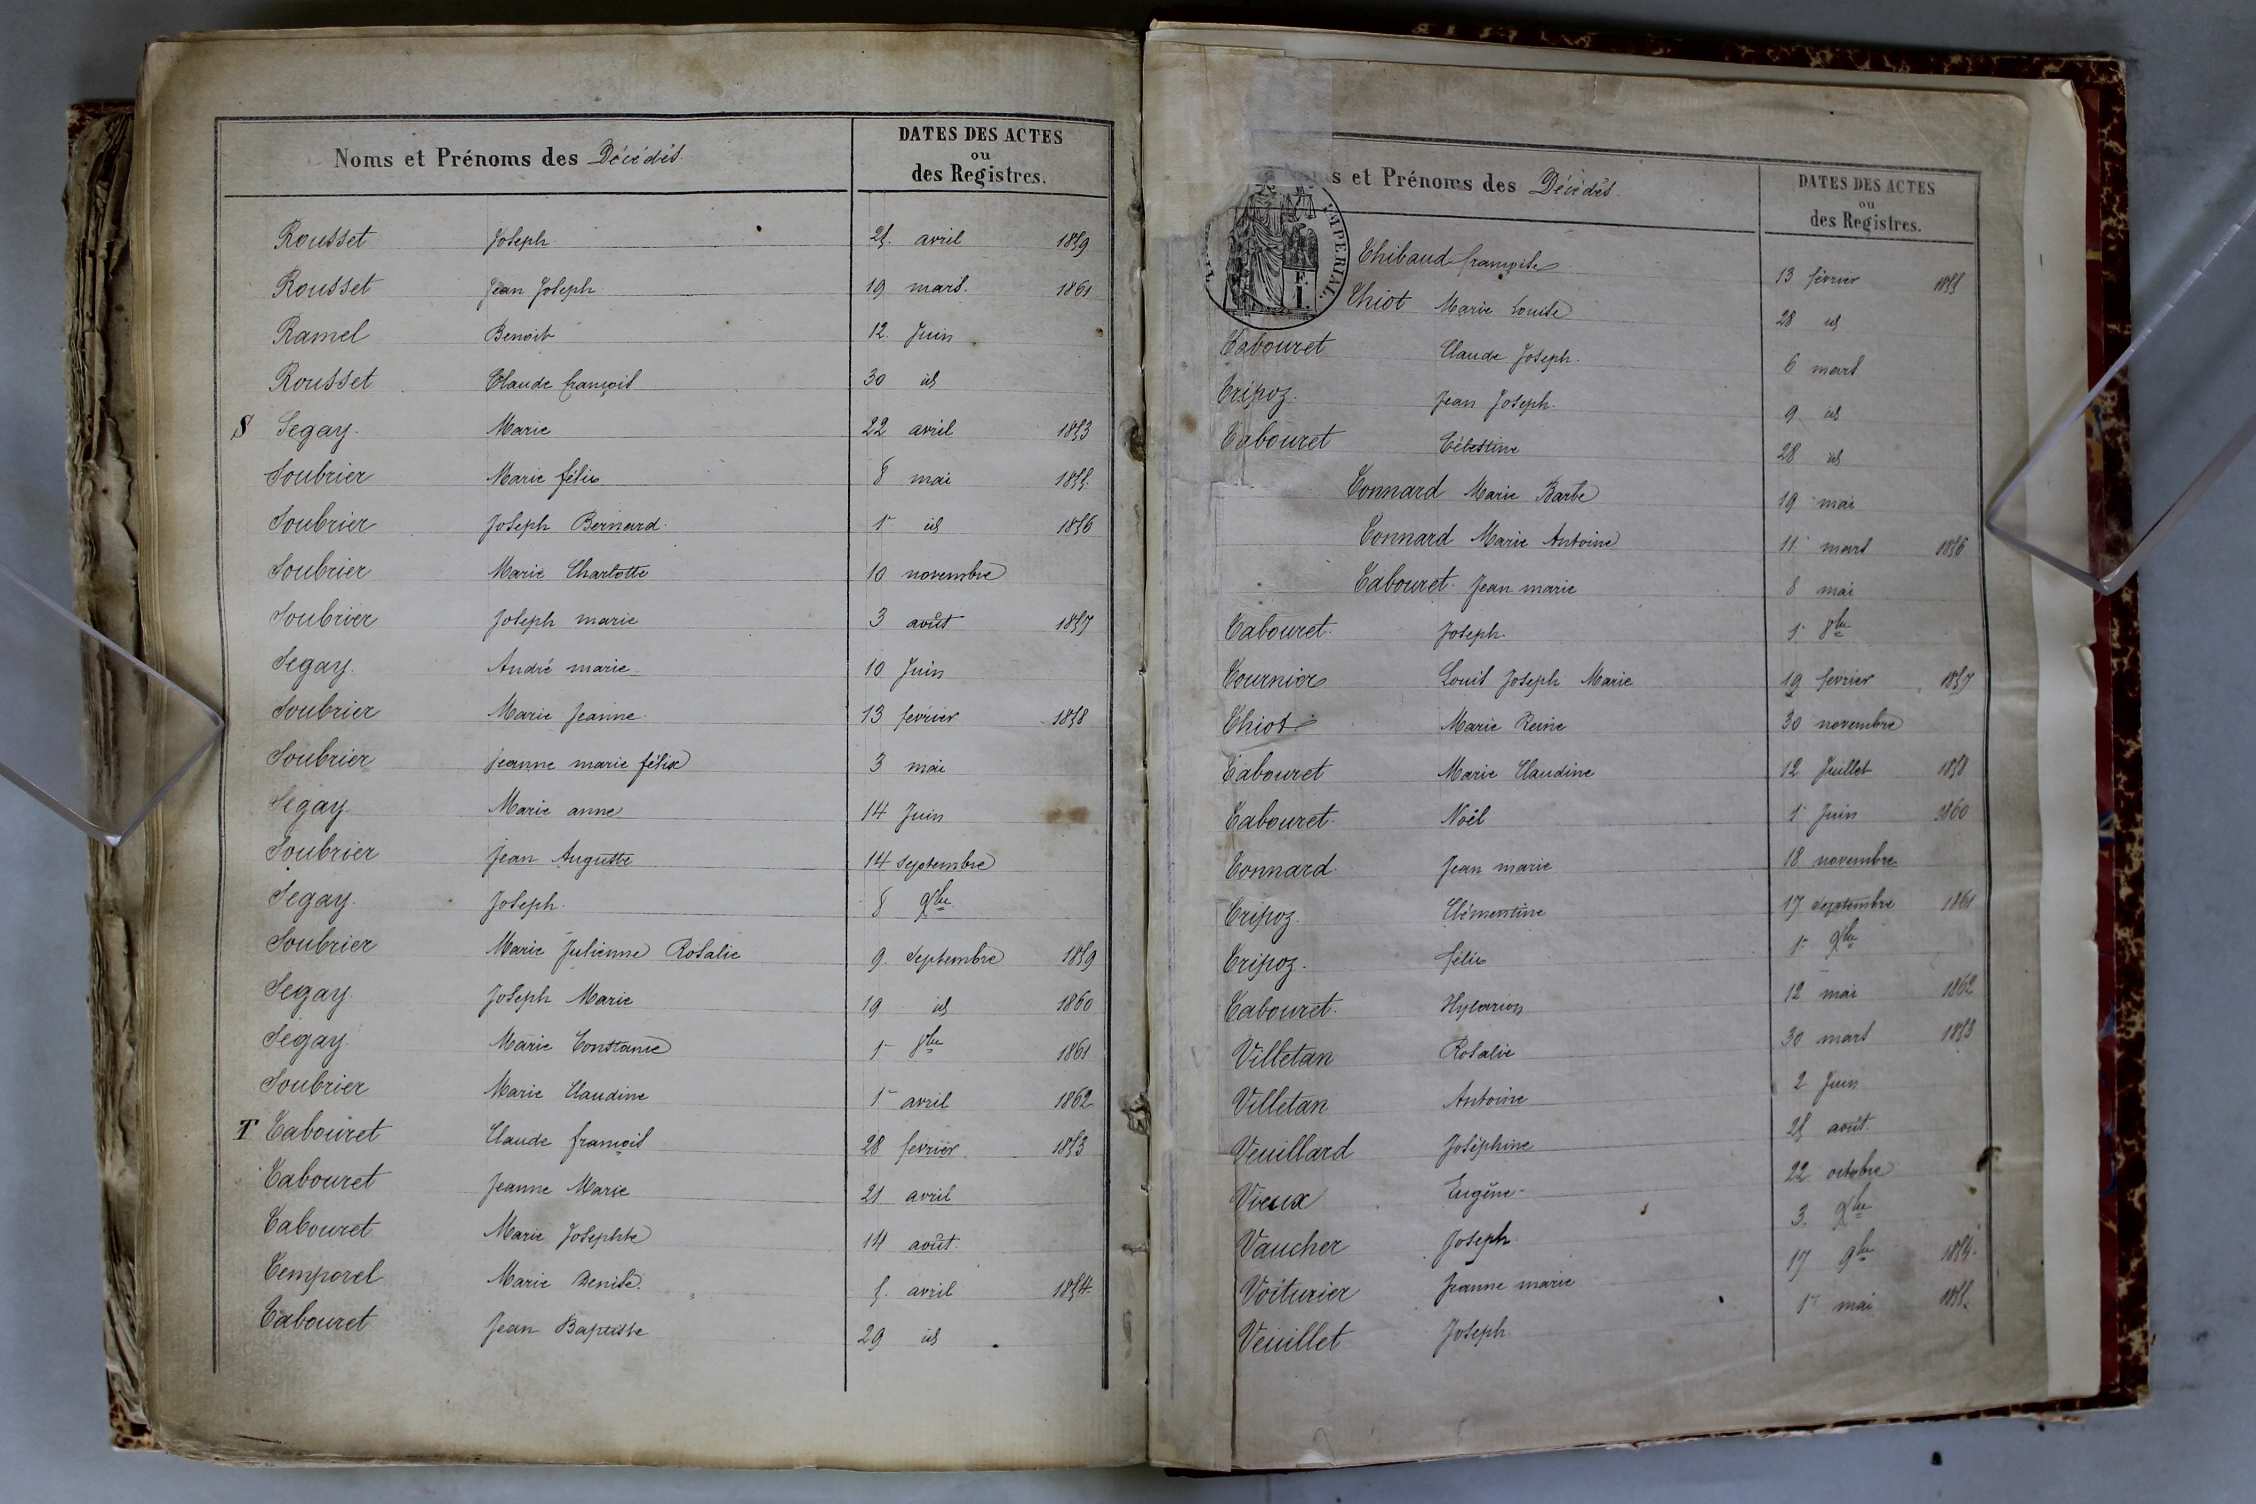 Noms et Prénoms des Décédés.
DATES DES ACTES
ou
des Registres.
Rousset Joseph 25. avril 1859
Rousset Jean Joseph 19 mars. 1861
Ramel Benoit 12. Juin
Rousset Claude françois 30 id
S Segay. Marie 22 avril 1853
Soubrier Marie félix 8 mai 1855.
Soubrier Joseph Bernard. 1er id 1856
Soubrier Marie Charlotte 10 novembre
Soubrier Joseph marie 3 août 1857
Segay. André marie 10 Juin
Soubrier Marie Jeanne 13 février 1858
Soubrier Jeanne marie félix 3 mai
Segay Marie anne 14 Juin
Soubrier Jean Auguste 14 septembre
Segay. Joseph. 8 9bre
Soubrier Marie Julienne Rosalie 9. septembre 1859
Segay. Joseph Marie 19 id 1860
Segay. Marie Constance 1er 8bre 1861
Soubrier Marie Claudine 1er avril 1862
T Tabouret Claude françois 28 février 1853
Tabouret Jeanne Marie 21 avril
Tabouret Marie Josephte 14 août.
Temporel Marie Denise. 5. avril 1854
Tabouret Jean Baptiste 29 id
s et Prénoms des Décédés.
DATES DES ACTES
ou
des Registres.
IMPERIAL.
Thibaud françoise 13 février 1855
Thiot Marie Louise 28 id
Tabouret Claude Joseph. 6 mars
Tripoz. Jean Joseph. 9 id
Tabouret Célestine 28 id
Tonnard Marie Barbe 19 mai
Tonnard Marie Antoine 11 mars 1856
Tabouret. Jean marie 8 mai
Tabouret. Joseph. 1er 8bre
Tournier Louis Joseph Marie 19 février 1857
Thiot. Marie Reine 30 novembre
Tabouret Marie Claudine 12 Juillet 1858
Tabouret. Noël 1er Juin 1860
Tonnard. Jean marie 18 novembre
Tripoz. Clémentine 17 septembre 1861
Tripoz. félix 1er 9bre
Tabouret. Hylarion 12 mai 1862
Villetan Rosalie 30 mars 1853
Villetan Antoine 2 Juin
Veuillard Joséphine 25 août.
Vieux Eugène 22 octobre
Vaucher Joseph 3. 9bre
Voiturier Jeanne marie 17 9bre 1854
Veuillet Joseph 1er mai 1855.